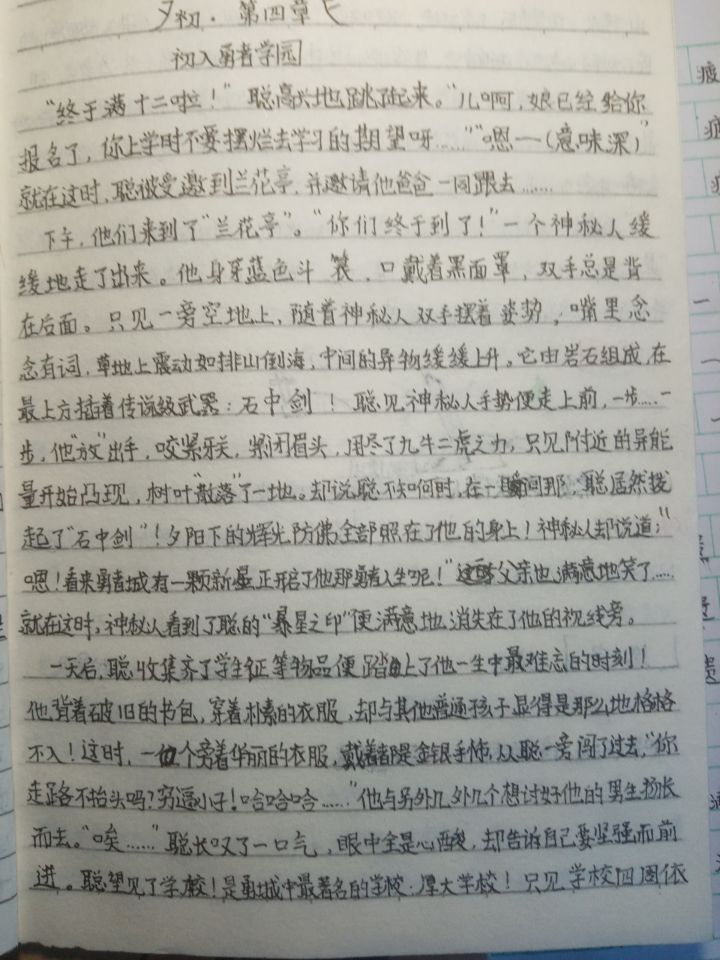 夕初·第四章
初入勇者学园
“终于满十二啦！”聪高兴地跳起来。“儿啊，娘已经给你
报名了，你上学时不要摆烂去学习的期望呀……”“嗯一(意味深)”
就在这时，聪被受邀到兰花亭，并邀请他爸爸一同跟去……
下午，他们来到了“兰花亭”。“你们终于到了！”一个神秘人缓
缓地走了出来。他身穿蓝色斗篷，口戴着黑面罩，双手总是背
在后面。只见一旁空地上，随着神秘人双手摆着姿势，嘴里念
念有词，草地上震动如排山倒海，中间的异物缓缓上升。它由岩石组成，在
最上方插着传说级武器：石中剑！聪见神秘人手势便走上前，一步……一
步，他“放”出手，咬紧牙关，紧闭眉头，用尽了九牛二虎之力，只见附近的异能
量开始凸现，树叶“散落”了一地。却说聪不知何时，在一瞬间那，聪居然拔
起了“石中剑”！夕阳下的辉光防佛全部照在了他的身上！神秘人却说道：“
嗯！看来勇者城有一颗新星正开启了他那勇者人生呢！”这时父亲也满意地笑了……
就在这时，神秘人看到了聪的“暴星之印”便满意地消失在了他的视线旁。
一天后，聪收集齐了学生证等物品便踏上了他一生中最难忘的时刻！
他背着破旧的书包，穿着朴素的衣服，却与其他普通孩子显得是那么地格格
不入！这时，一个穿着华丽的衣服，戴着都是金银手饰，从聪一旁闯了过去，“你
走路不抬头吗？穷逼小子！哈哈哈……”他与另外几外几个想讨好他的男生扬长
而去。“唉……”聪长叹了一口气，眼中全是心酸，却告诉自己要坚强而前
进。聪望见了学校！是勇城中最著名的学校：厚大学校！只见学校四周依